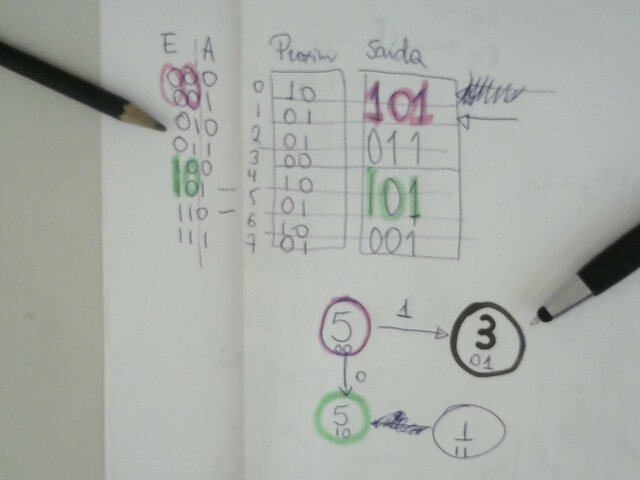 E A Proxim Saida
00 0 0 10 101
00 1 1 01
01 0 2 01 011
01 1 3 00
10 0 4 10 101
10 1 5 01
11 0 6 10 001
11 1 7 01
5 1 3
00 01
0
5 1
10 11